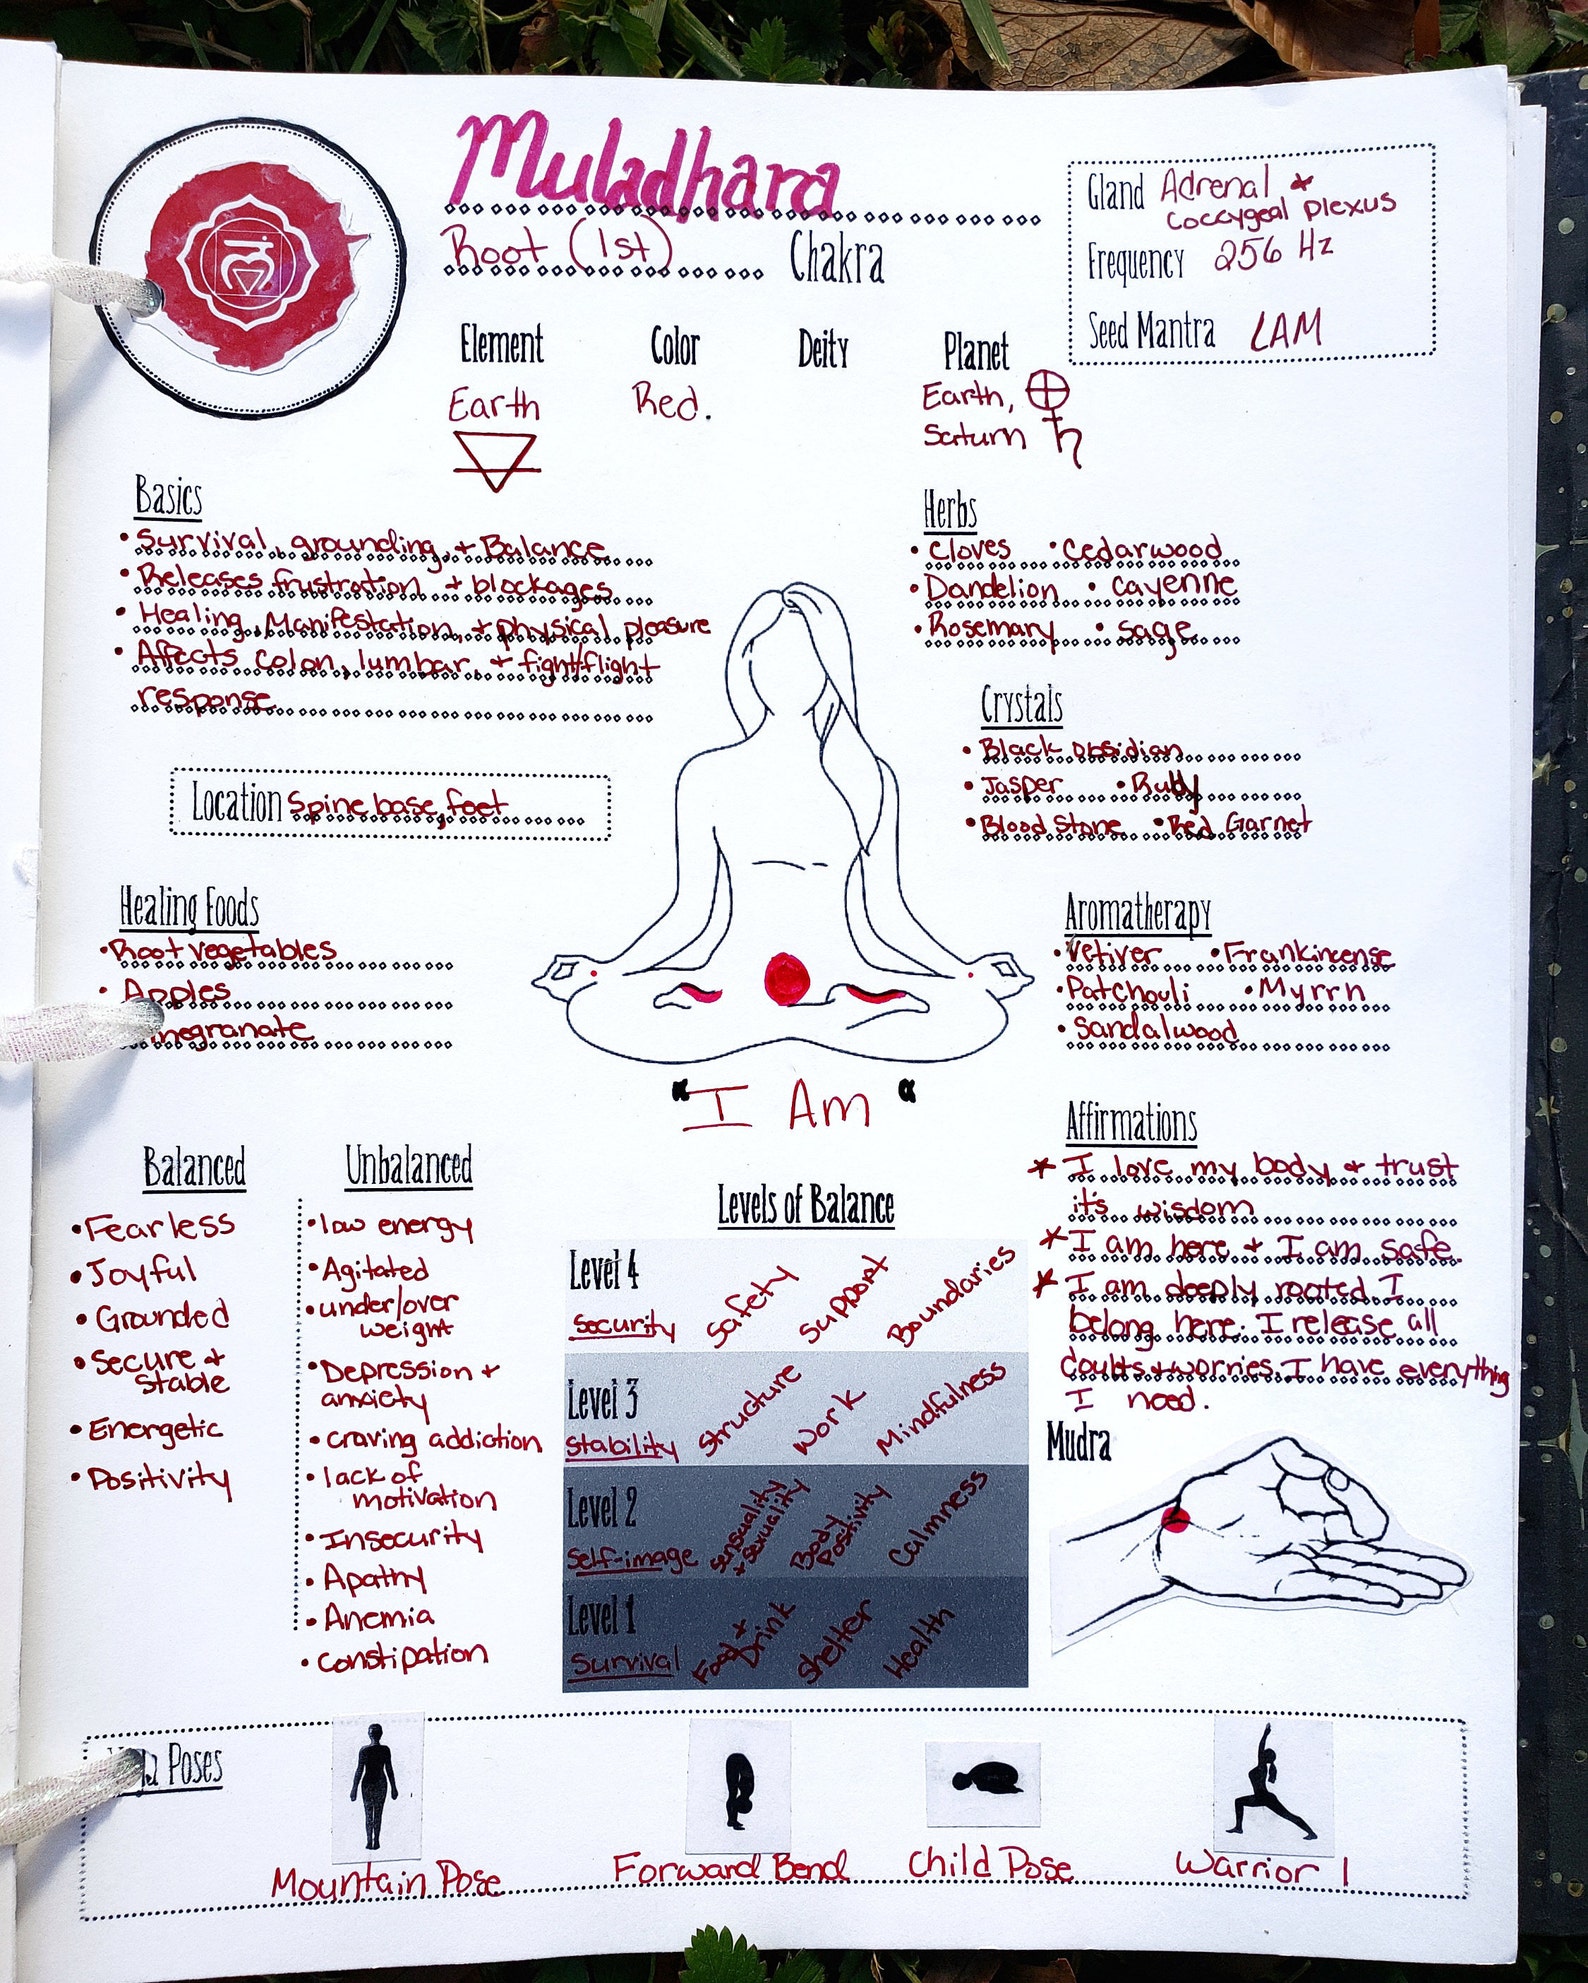 Muladhara
Root (1st) Chakra
Gland Adrenal +
Coccygeal Plexus
Frequency 256 Hz
Seed Mantra LAM
Element Color Deity Planet
Earth Red. Earth,
Saturn
Basics
• Survival, grounding, + Balance
• Releases frustration + blockages
• Healing, Manifestation, + physical pleasure
• Affects colon, lumbar, + fight/flight
response
Location Spine base, feet
Herbs
• Cloves • Cedarwood
• Dandelion • cayenne
• Rosemary • sage
Crystals
• Black obsidian
• Jasper • Ruby
• Blood Stone • Red Garnet
Healing Foods
• Root vegetables
• Apples
Aromatherapy
• Vetiver • Frankincense
• Patchouli • Myrrh
• Sandalwood
"I Am"
Affirmations
* I love my body + trust
it's wisdom
* I am here + I am safe.
* I am deeply rooted. I
belong here. I release all
doubts + worries. I have everything
I need.
Balanced
• Fearless
• Joyful
• Grounded
• Secure +
Stable
• Energetic
• Positivity
Unbalanced
• low energy
• Agitated
• under/over
weight
• Depression +
anxiety
• craving addiction
• lack of
motivation
• Insecurity
• Apathy
• Anemia
• constipation
Levels of Balance
Level 4
Security Safety Support Boundaries
Level 3
Stability Structure Work Mindfulness
Level 2
Self-image Sensuality + Sexuality Body Positivity Calmness
Level 1
Survival Food + Drink Shelter Health
Mudra
Poses
Mountain Pose Forward Bend Child Pose Warrior 1